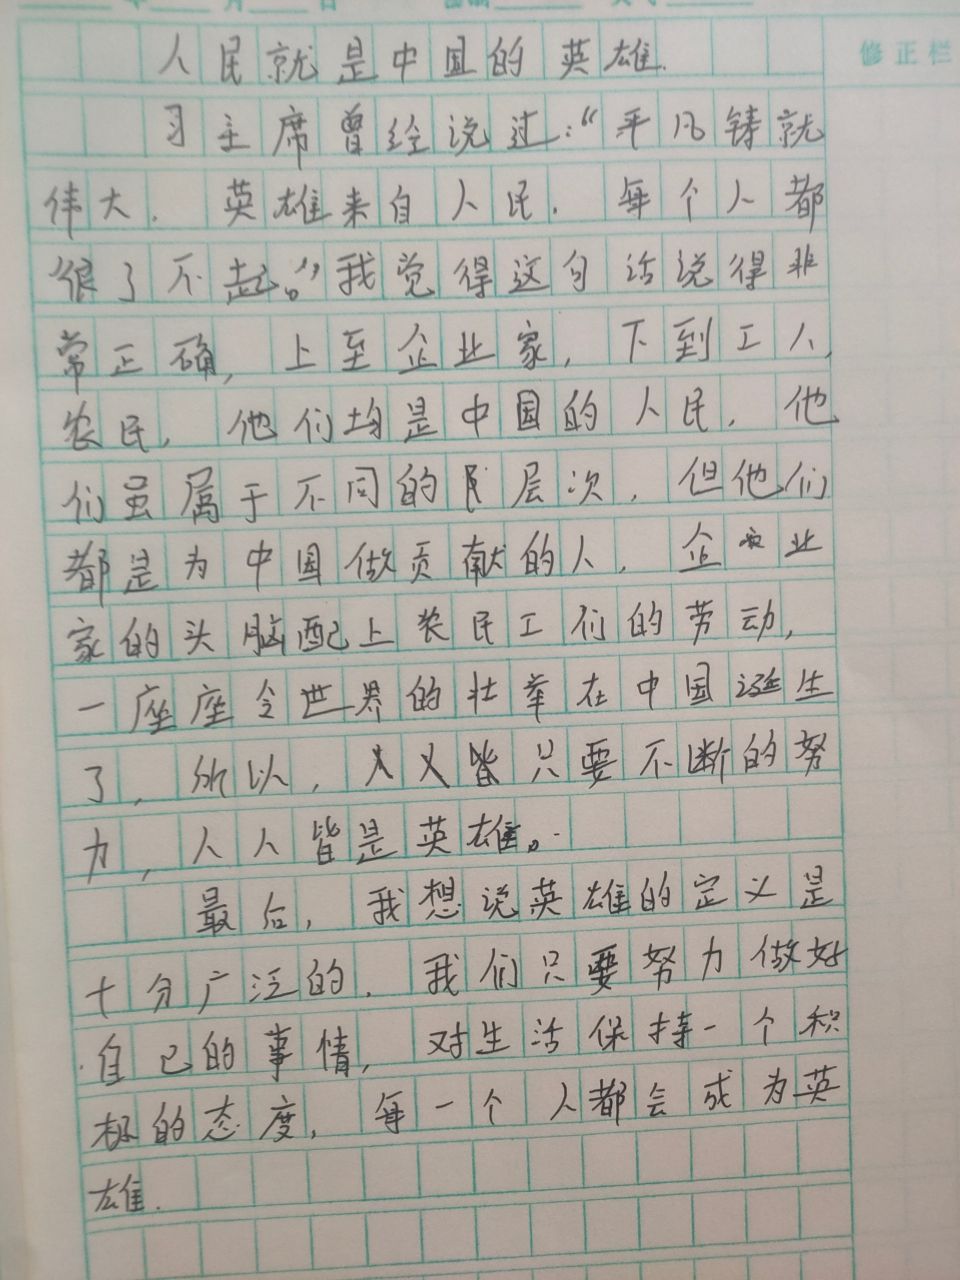 人民就是中国的英雄.
习主席曾经说过:“平凡铸就
伟大.英雄来自人民.每个人都
很了不起。”我觉得这句话说得非
常正确,上至企业家,下到工人,
农民,他们均是中国的人民.他
们虽属于不同的阶层次,但他们
都是为中国做贡献的人,企业
家的头脑配上农民工们的劳动,
一座座令世界的壮举在中国诞生
了,所以,只要不断的努
力,人人皆是英雄。
最后,我想说英雄的定义是
十分广泛的,我们只要努力做好
自己的事情,对生活保持一个积
极的态度,每一个人都会成为英
雄.
修正栏